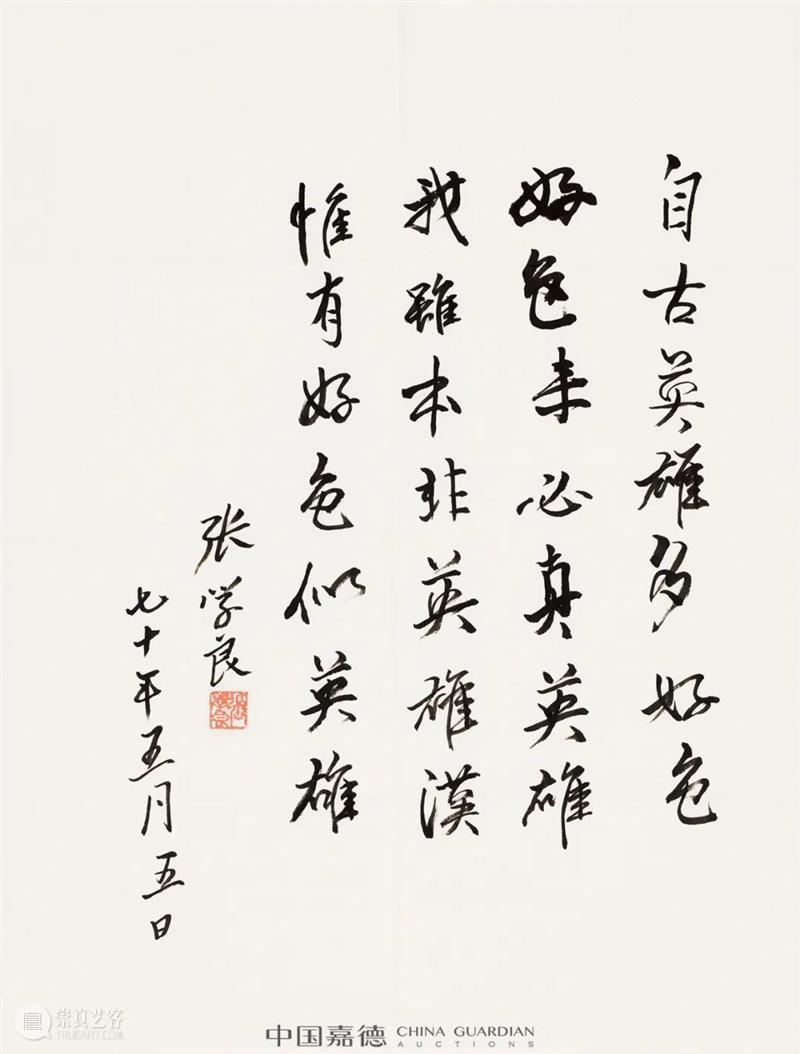 自古英雄多好色
好色未必真英雄
我雖本非英雄漢
惟有好色似英雄
张学良
七十年五月五日
崇真艺客
TRUEART.COM
中国嘉德 CHINA GUARDIAN
AUCTIONS